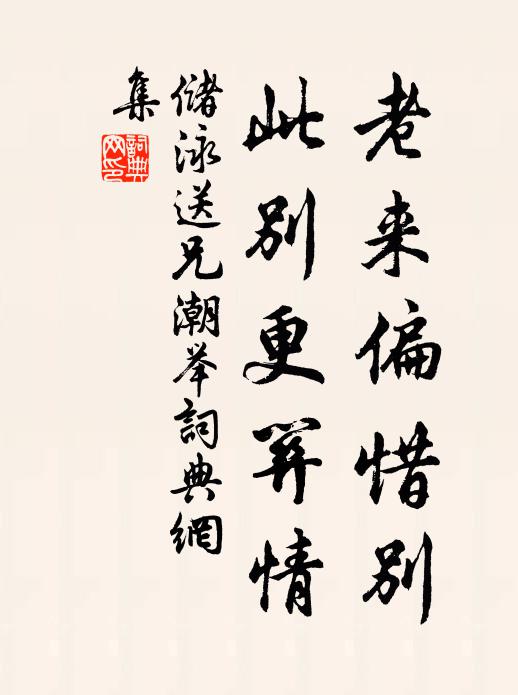 老来偏惜别
此别更关情
储泳送兄潮举詞典網
集
詞典
网印